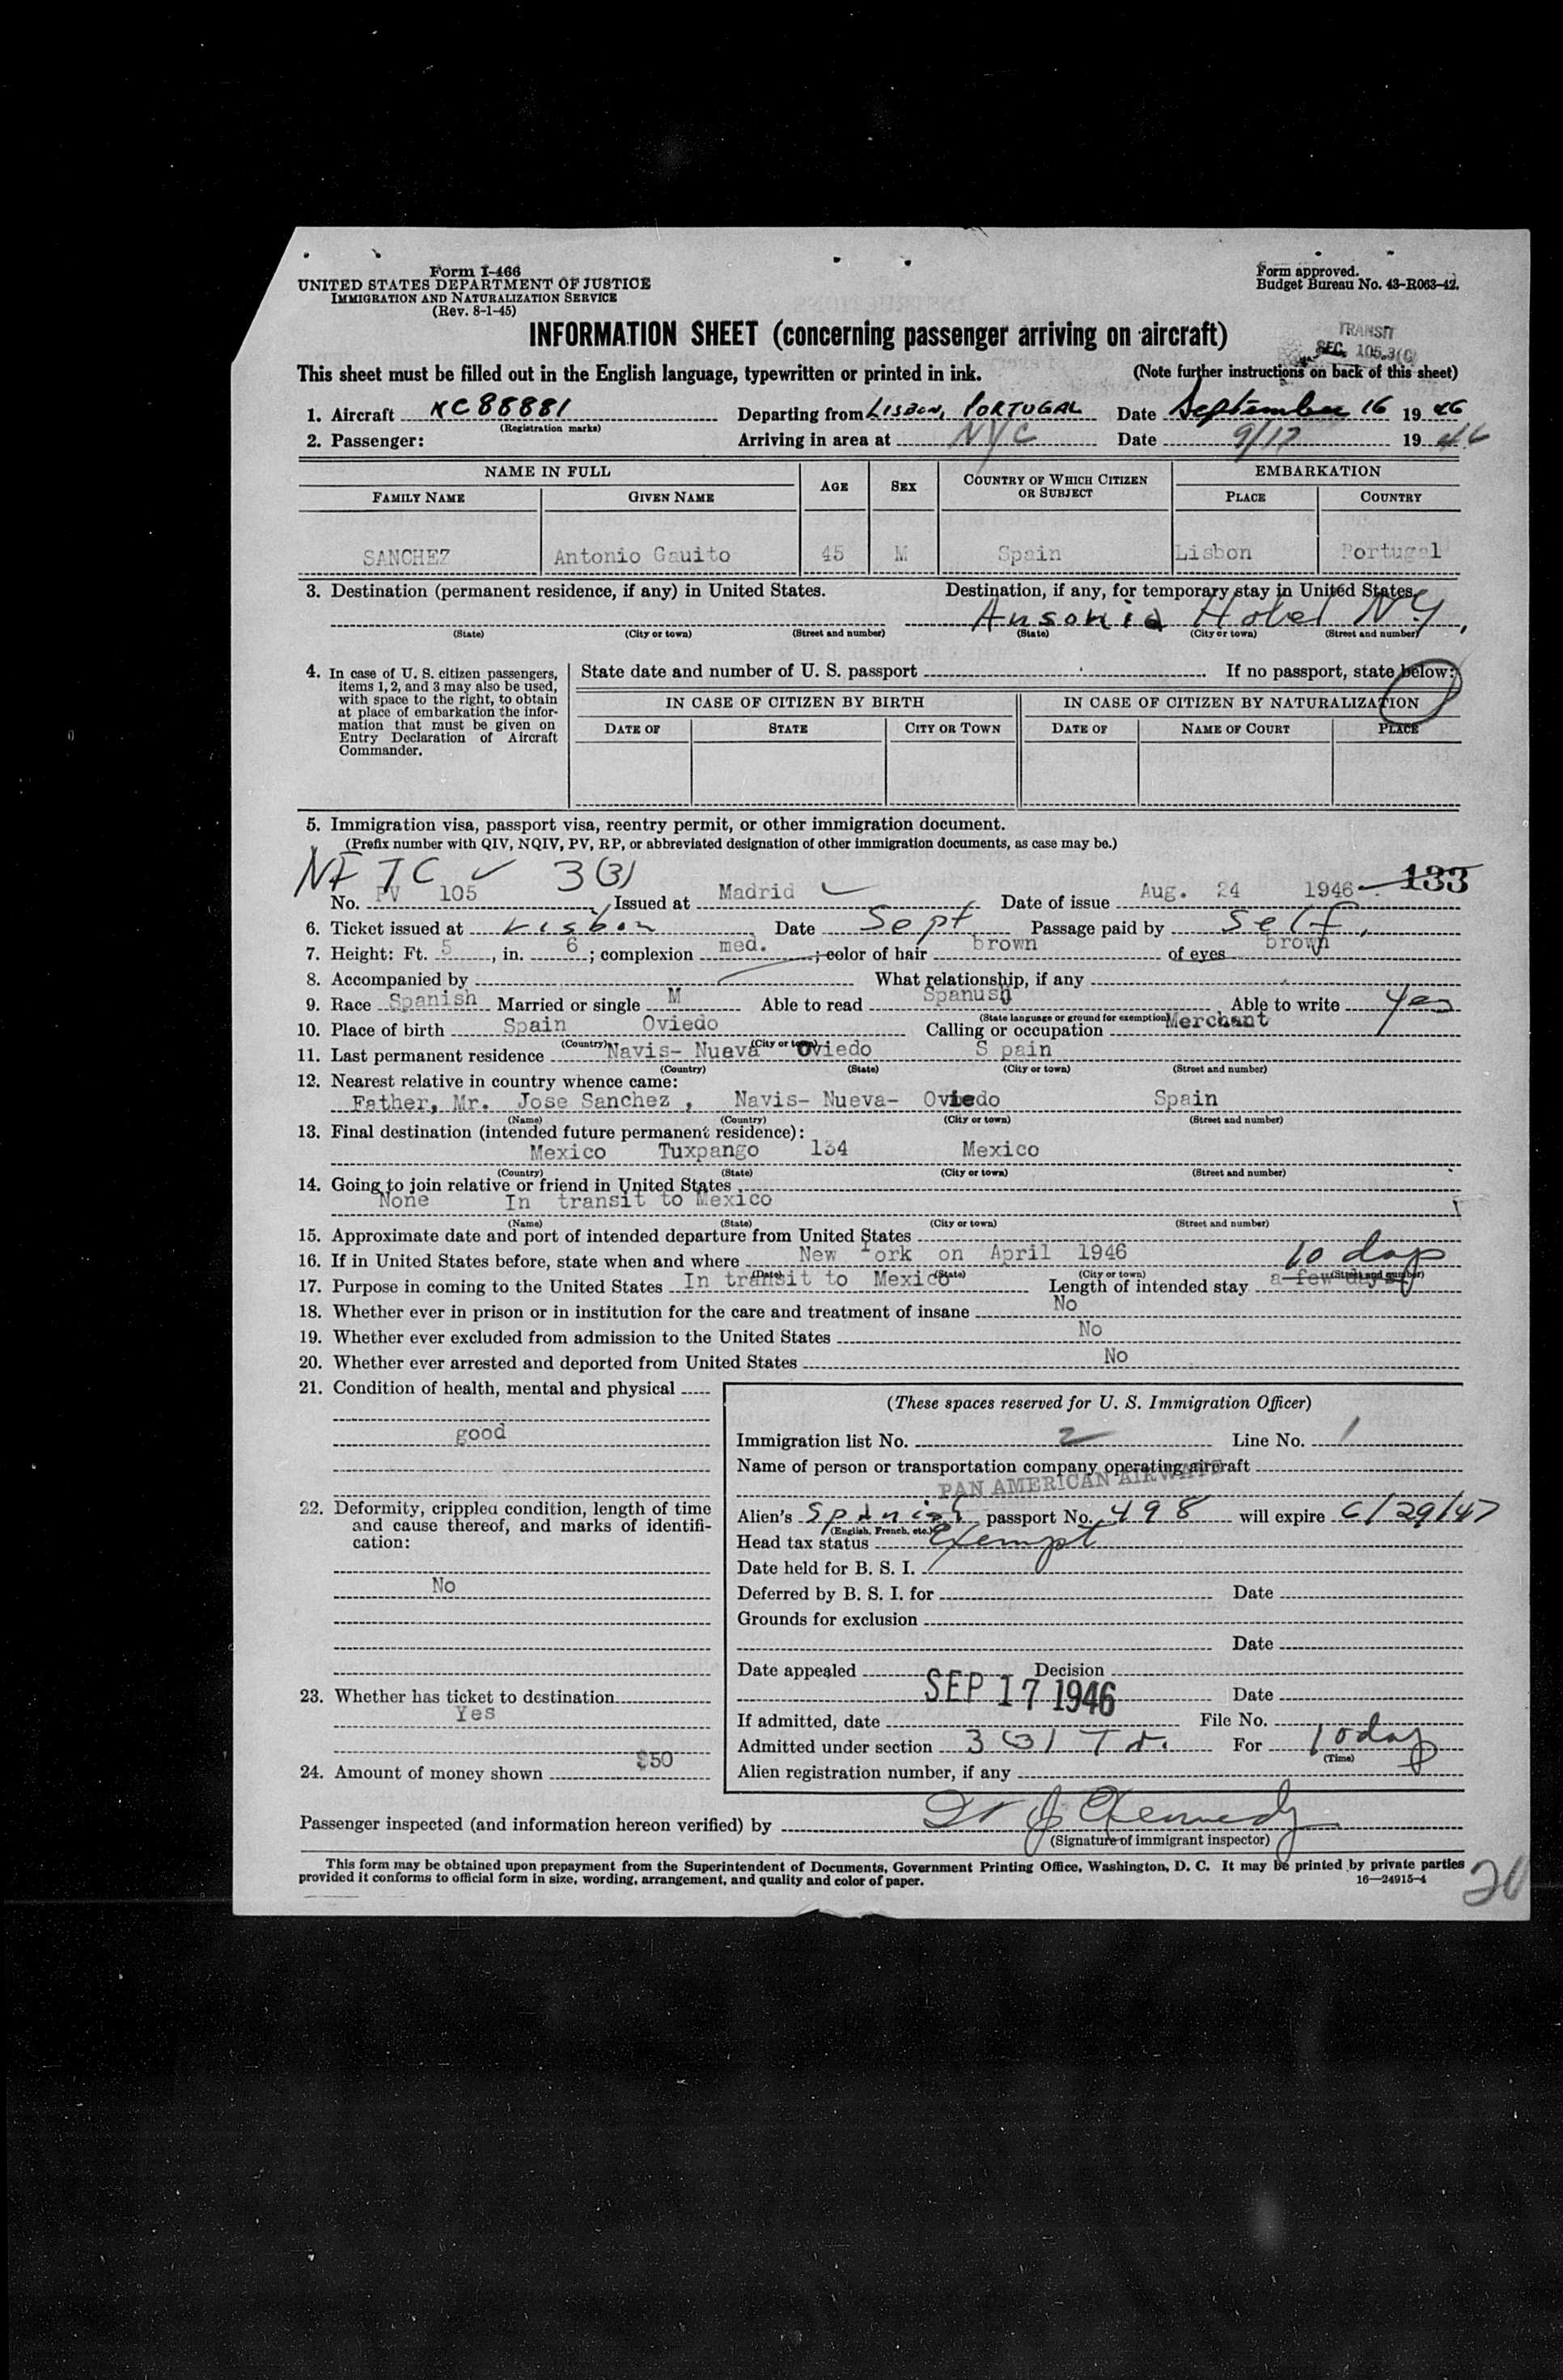 Form I-466
UNITED STATES DEPARTMENT OF JUSTICE
IMMIGRATION AND NATURALIZATION SERVICE
(Rev. 8-1-45)
Form approved.
Budget Bureau No. 43-R063-42.
INFORMATION SHEET (concerning passenger arriving on aircraft)
TRANSIT
SEC. 105.3(C)
This sheet must be filled out in the English language, typewritten or printed in ink. (Note further instructions on back of this sheet)
1. Aircraft NC88881 Departing from LISBON, PORTUGAL Date September 16 1946
(Registration marks)
2. Passenger: Arriving in area at NYC Date 9/17 1946
NAME IN FULL AGE SEX COUNTRY OF WHICH CITIZEN OR SUBJECT EMBARKATION
FAMILY NAME GIVEN NAME PLACE COUNTRY
SANCHEZ Antonio Gauito 45 M Spain Lisbon Portugal
3. Destination (permanent residence, if any) in United States. Destination, if any, for temporary stay in United States.
Ansonia Hotel NY,
(State) (City or town) (Street and number) (State) (City or town) (Street and number)
4. In case of U. S. citizen passengers, items 1, 2, and 3 may also be used, with space to the right, to obtain at place of embarkation the information that must be given on Entry Declaration of Aircraft Commander.
State date and number of U. S. passport If no passport, state below:
IN CASE OF CITIZEN BY BIRTH IN CASE OF CITIZEN BY NATURALIZATION
DATE OF STATE CITY OR TOWN DATE OF NAME OF COURT PLACE
5. Immigration visa, passport visa, reentry permit, or other immigration document.
(Prefix number with QIV, NQIV, PV, RP, or abbreviated designation of other immigration documents, as case may be.)
3(3) 133
No. PV 105 Issued at Madrid Date of issue Aug. 24 1946
6. Ticket issued at Lisbon Date Sept Passage paid by Self.
7. Height: Ft. 5, in. 6; complexion med.; color of hair brown of eyes brown
8. Accompanied by What relationship, if any
9. Race Spanish Married or single M Able to read Spanush Able to write Yes
(State language or ground for exemption)
10. Place of birth Spain Oviedo Calling or occupation Merchant
(Country) (City or town)
11. Last permanent residence Navis- Nueva Oviedo S pain
(Country) (State) (City or town) (Street and number)
12. Nearest relative in country whence came:
Father, Mr. Jose Sanchez , Navis- Nueva- Oviedo Spain
(Name) (Country) (City or town) (Street and number)
13. Final destination (intended future permanent residence):
Mexico Tuxpango 134 Mexico
(Country) (State) (City or town) (Street and number)
14. Going to join relative or friend in United States
None In transit to Mexico
(Name) (State) (City or town) (Street and number)
15. Approximate date and port of intended departure from United States
16. If in United States before, state when and where New York on April 1946
(Date) (State) (City or town) (Street and number)
10 days
17. Purpose in coming to the United States In transit to Mexico Length of intended stay a few days
18. Whether ever in prison or in institution for the care and treatment of insane No
19. Whether ever excluded from admission to the United States No
20. Whether ever arrested and deported from United States No
21. Condition of health, mental and physical
good
22. Deformity, crippled condition, length of time and cause thereof, and marks of identification:
No
23. Whether has ticket to destination
Yes
24. Amount of money shown $50
(These spaces reserved for U. S. Immigration Officer)
Immigration list No. 2 Line No. 1
Name of person or transportation company operating aircraft
PAN AMERICAN AIRWAYS
Alien's Spanish passport No. 498 will expire 6/29/47
(English, French, etc.)
Head tax status Exempt
Date held for B. S. I.
Deferred by B. S. I. for Date
Grounds for exclusion
Date
Date appealed Decision
SEP 17 1946 Date
If admitted, date File No.
Admitted under section 3(3) Tr. For 10 days
(Time)
Alien registration number, if any
Passenger inspected (and information hereon verified) by Kennedy
(Signature of immigrant inspector)
This form may be obtained upon prepayment from the Superintendent of Documents, Government Printing Office, Washington, D. C. It may be printed by private parties
provided it conforms to official form in size, wording, arrangement, and quality and color of paper. 16—24915-4